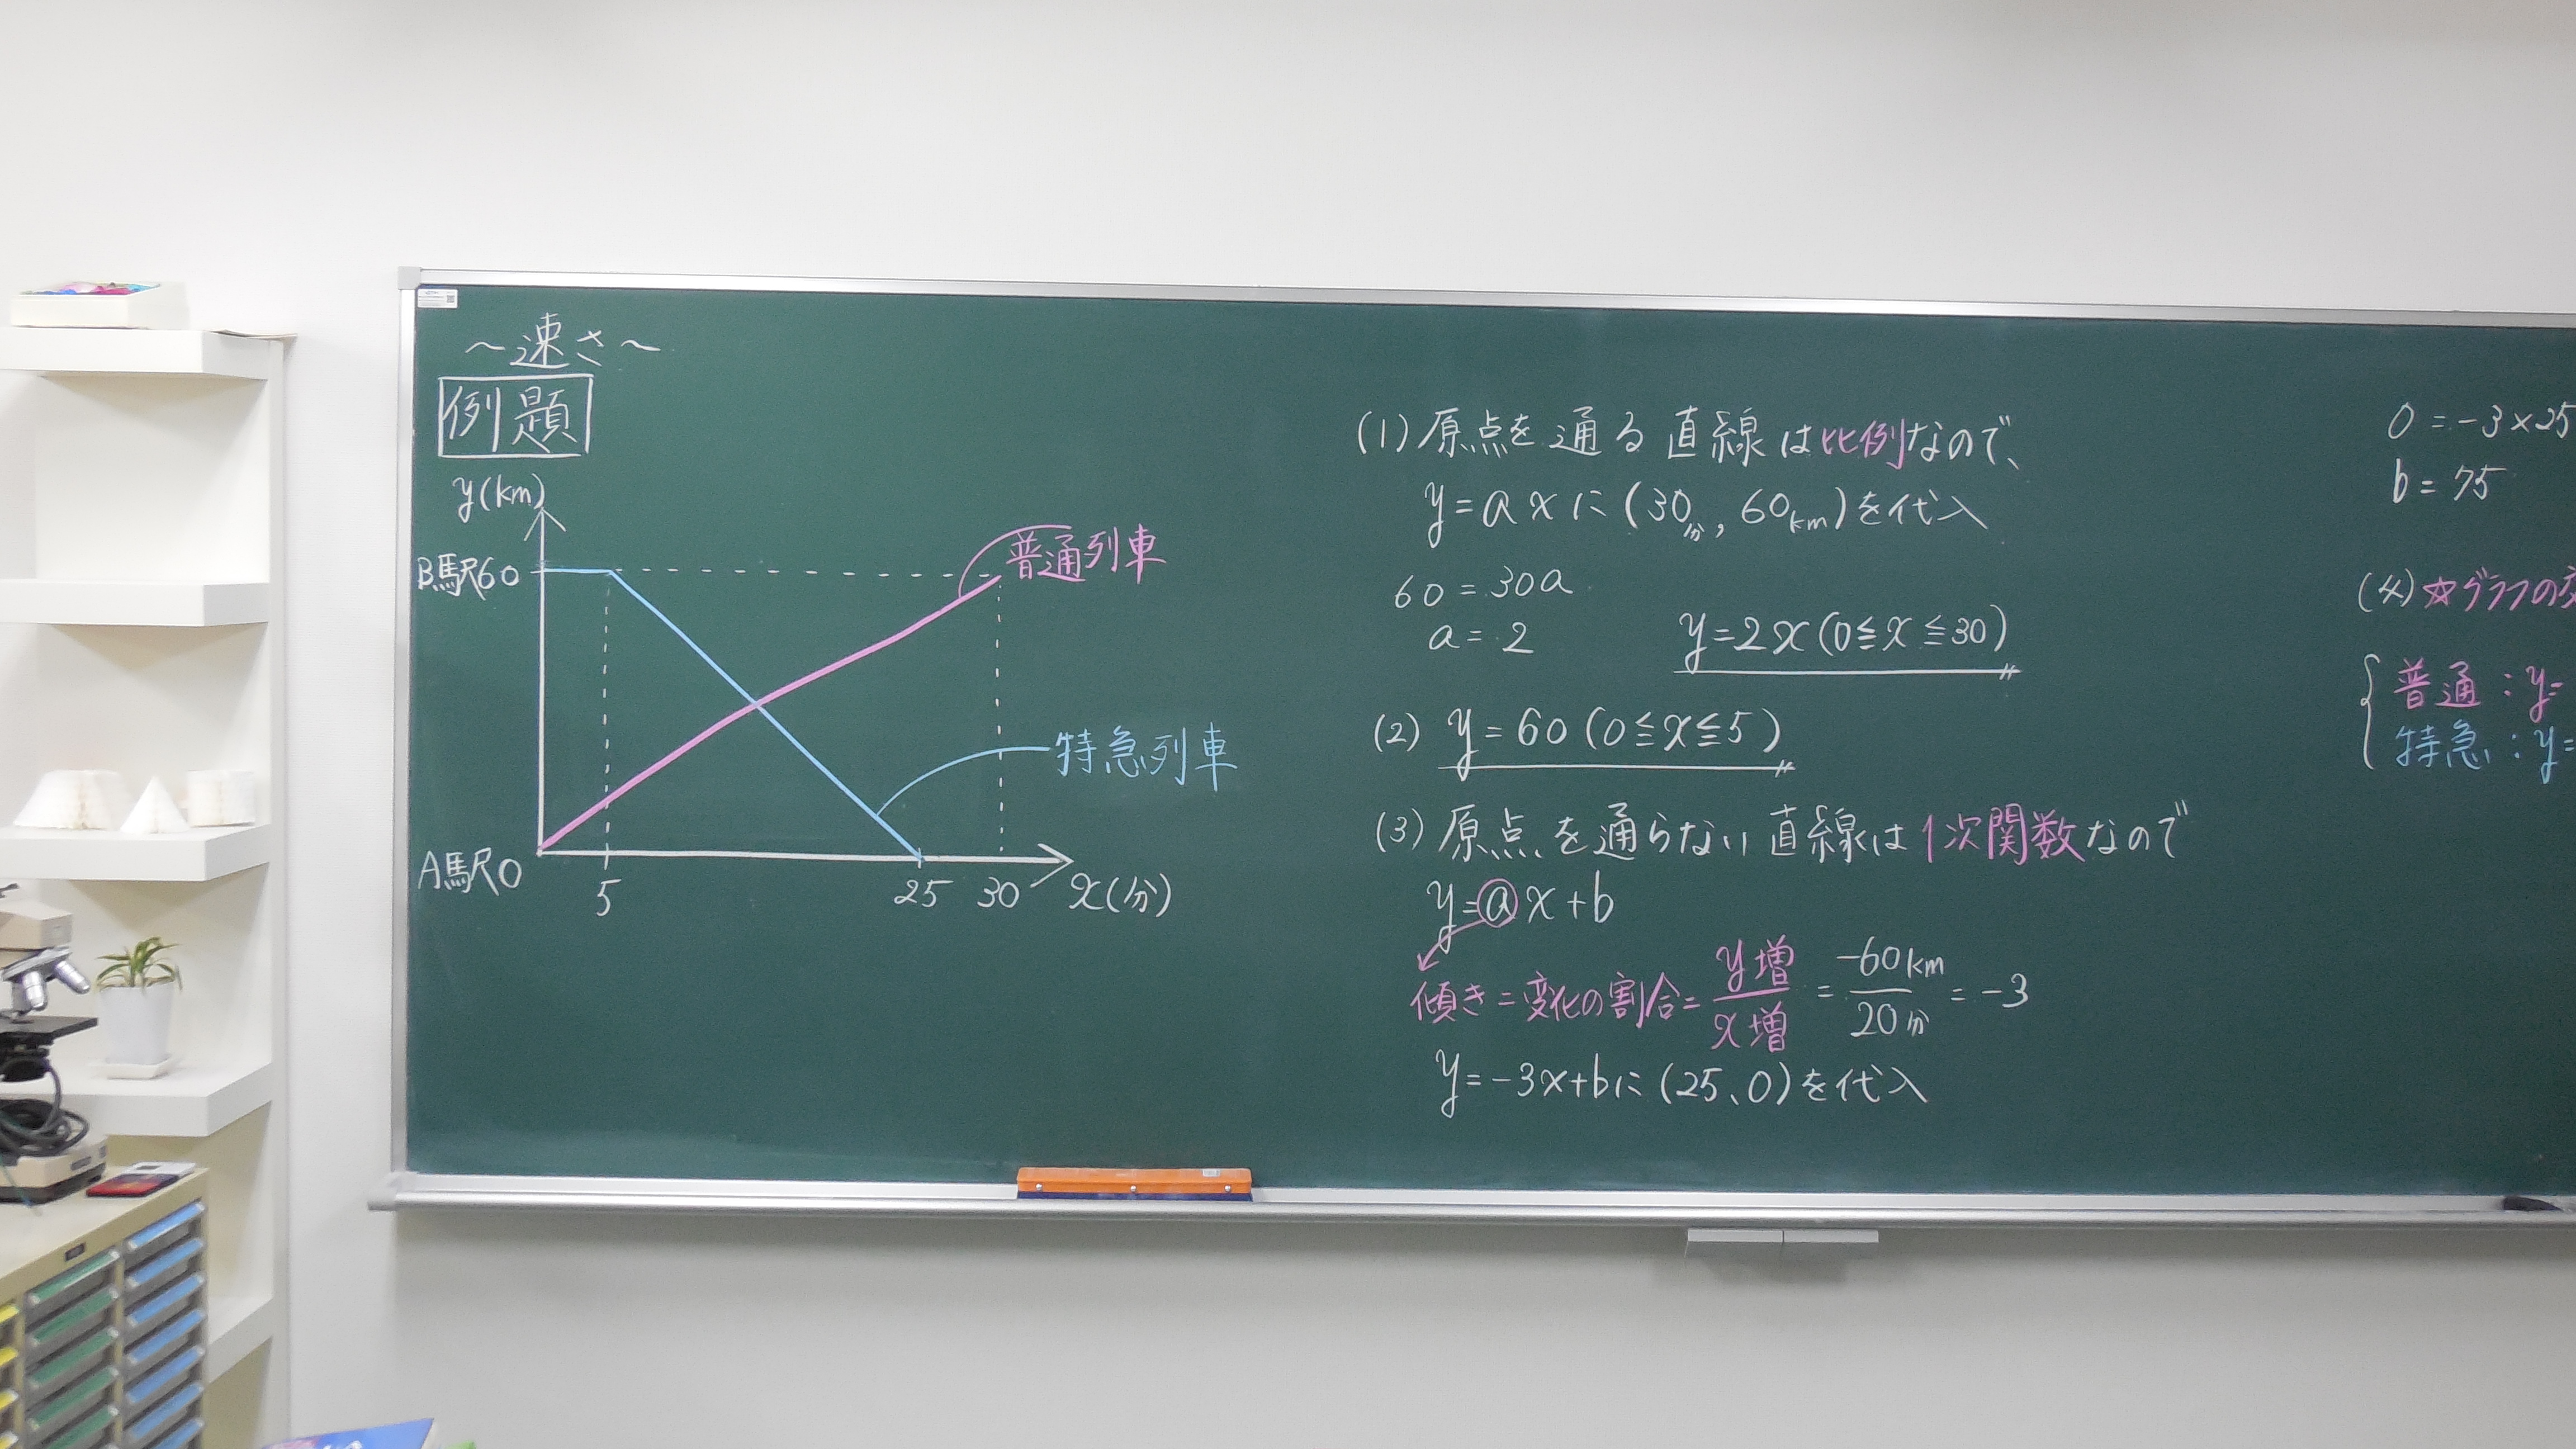 ～速さ～
例題
y(km)
B駅60
A駅0
5
25
30
x(分)
普通列車
特急列車
(1)原点を通る直線は比例なので、
y=axに(30分, 60km)を代入
60=30a
a=2
y=2x(0≦x≦30)
(2) y=60(0≦x≦5)
(3)原点を通らない直線は1次関数なので
y=ax+b
傾き=変化の割合=y増/x増=-60km/20分=-3
y=-3x+bに(25、0)を代入
0=-3×25
b=75
(4)☆グラフの
普通:y=
特急:y=